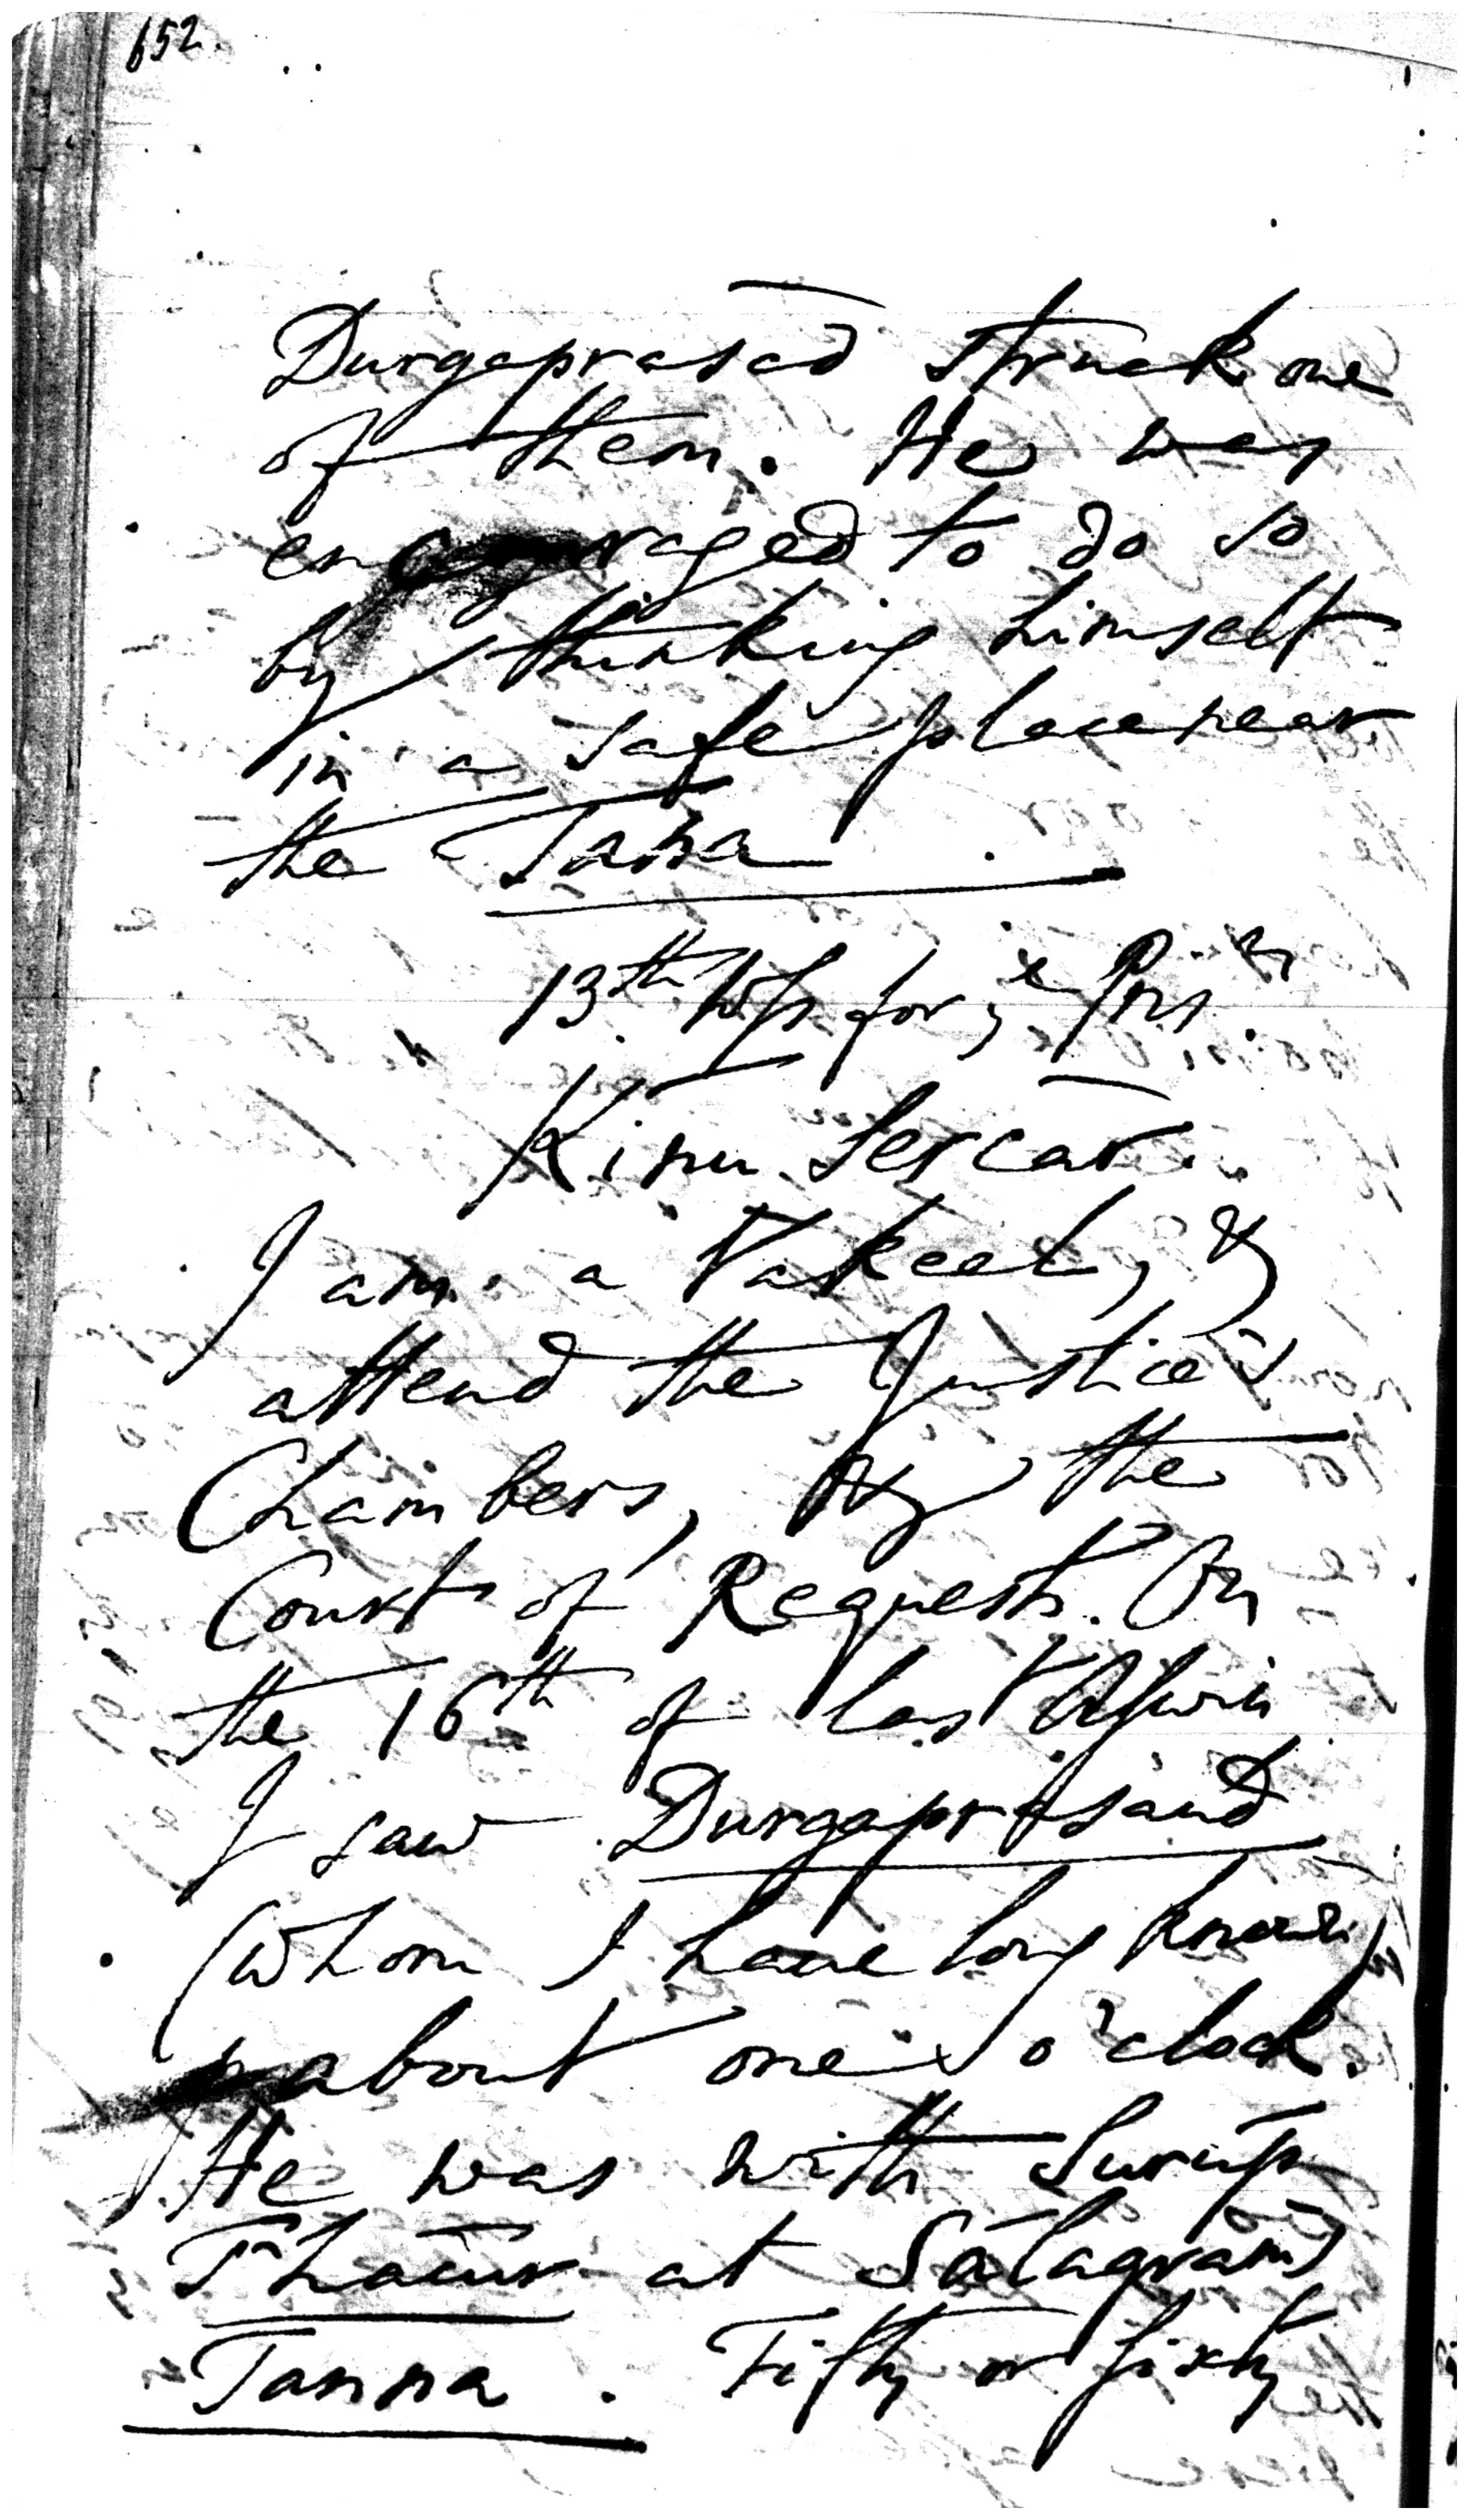 652.
Durgaprasād struck one
of them. He was
encouraged to do so
by thinking himself
in a safe place near
the Tanna
13th Wss for ye Prisr.
Kinu Sercār.
I am a Vakeel, &
attend the Justice's
Chambers, & the
Court of Requests. On
the 16th of last Aswin
I saw Durgaprasaud
(whom I have long known)
about one o'clock.
He was with Surūp
Thacur at Sālagram's
Tanna. Fifty or sixty